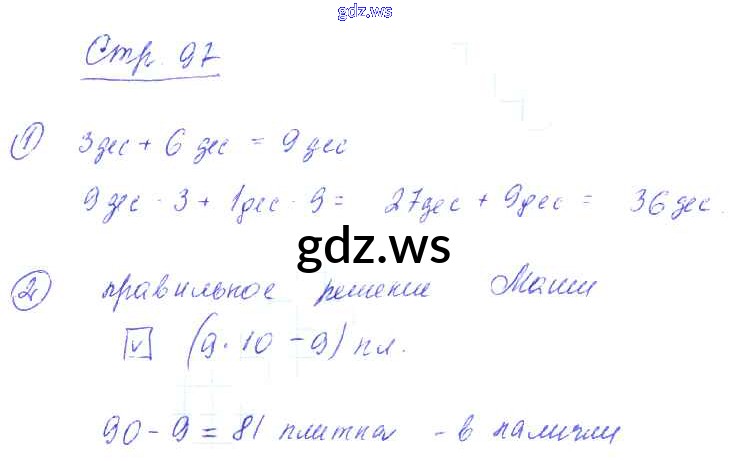 gdz.ws
Стр. 97
① 3 дес + 6 дес = 9 дес
9 дес · 3 + 1 дес · 9 = 27 дес + 9 дес = 36 дес.
gdz.ws
② правильное решение Маши
☑ (9 · 10 - 9) пл.
90 - 9 = 81 плитка - в наличии